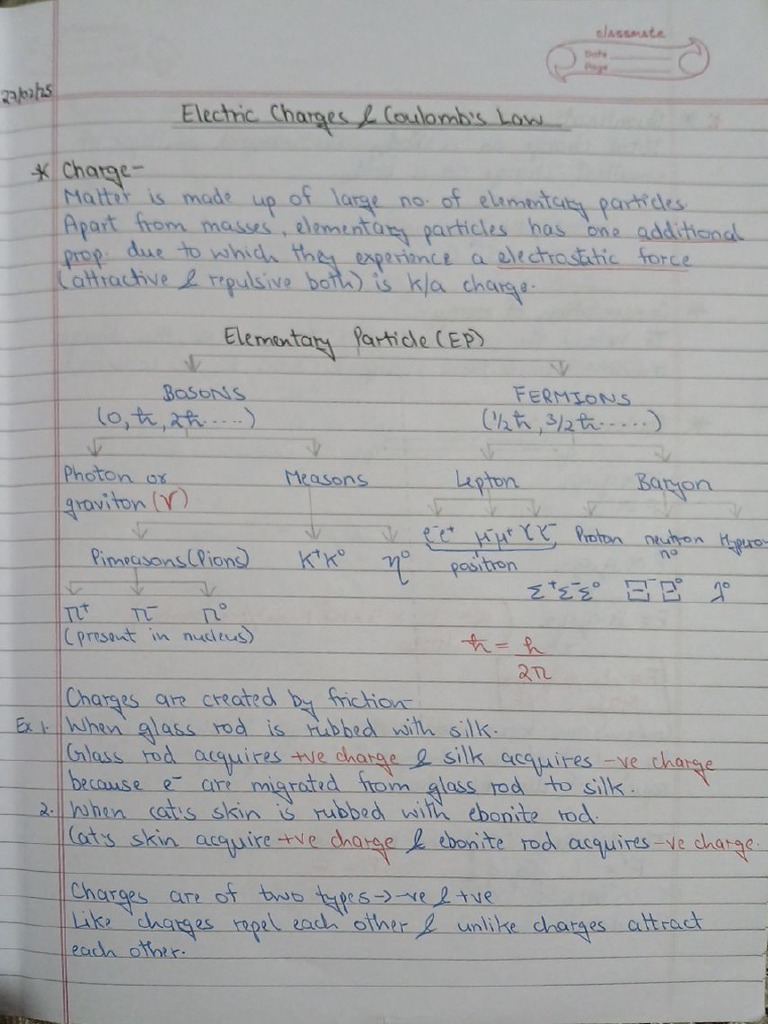 classmate
Date
Page
27/02/25
Electric Charges & Coulomb's Law
* Charge-
Matter is made up of large no. of elementary particles.
Apart from masses, elementary particles has one additional
prop. due to which they experience a electrostatic force
(attractive & repulsive both) is k/a charge.
Elementary Particle (EP)
BOSONS FERMIONS
(0, ħ, 2ħ.....) (1/2ħ, 3/2ħ......)
Photon or Measons Lepton Baryon
graviton (γ)
e⁻e⁺ μ⁻μ⁺ Proton neutron
Pimeasons (Pions) K⁺K⁰ η⁰ positron n⁰
Σ⁺Σ⁻Σ⁰ Ξ⁻Ξ⁰
π⁺ π⁻ π⁰
(present in nucleus)
ħ = h
2π
Charges are created by friction-
Ex 1. When glass rod is rubbed with silk.
Glass rod acquires +ve charge & silk acquires -ve charge
because e⁻ are migrated from glass rod to silk.
2. When cat's skin is rubbed with ebonite rod.
Cat's skin acquire +ve charge & ebonite rod acquires -ve charge.
Charges are of two types → -ve & +ve
Like charges repel each other & unlike charges attract
each other.